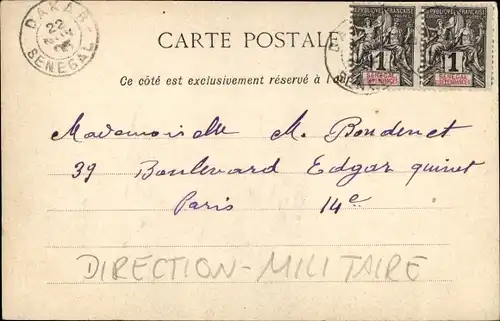 DAKAR
22
SENEGAL
CARTE POSTALE
RÉPUBLIQUE FRANÇAISE
1
SÉNÉGAL
ET DÉPENDANCES
RÉPUBLIQUE FRANÇAISE
1
SÉNÉGAL
ET DÉPENDANCES
Ce côté est exclusivement réservé à
Mademoiselle M. Bondenet
39 Boulevard Edgar quinet
Paris 14e
DIRECTION-MILITAIRE